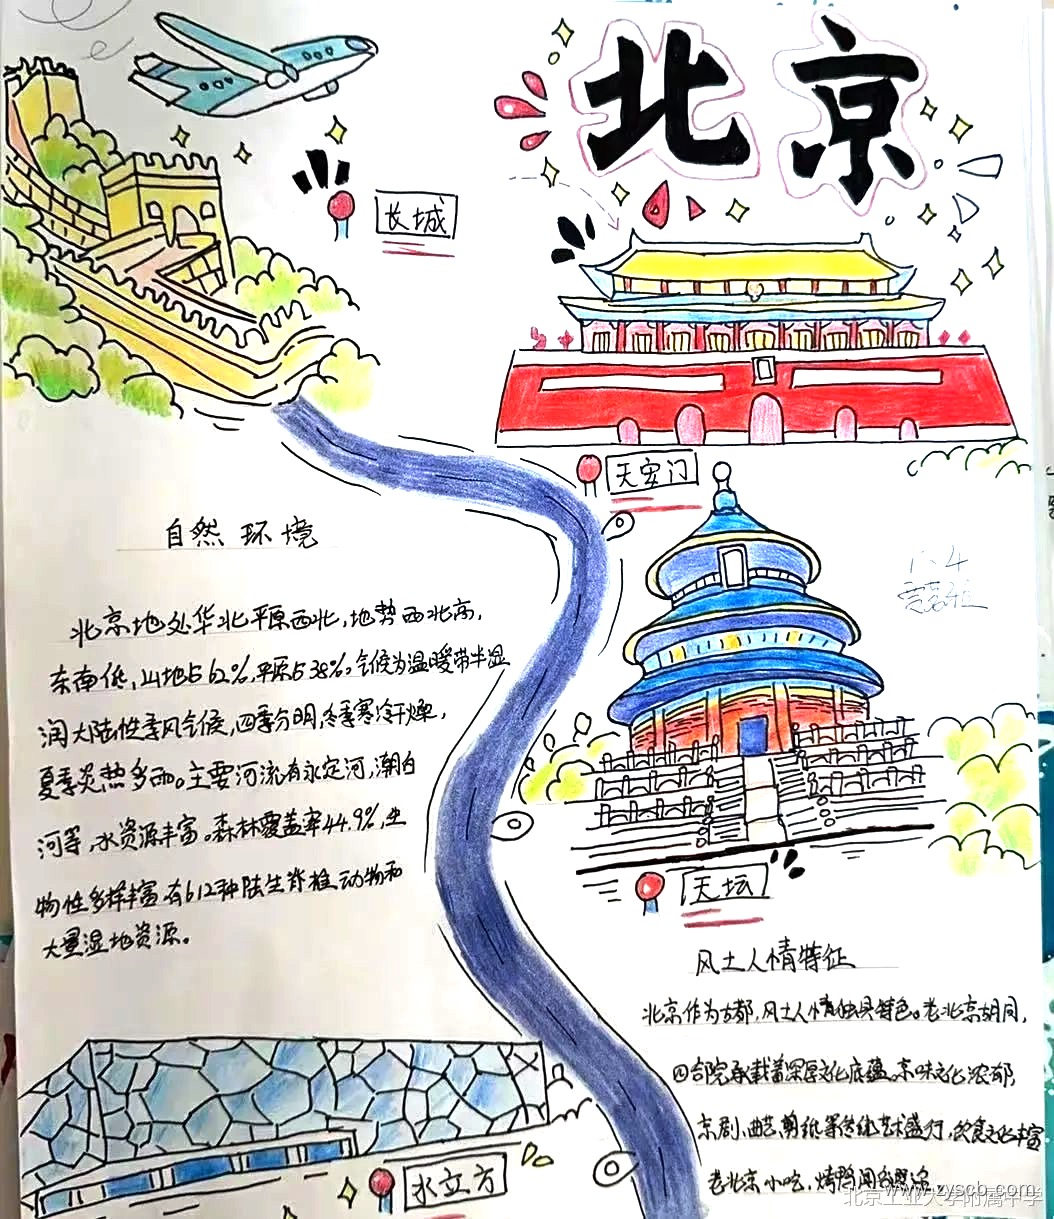 北京
长城
天安门
自然环境
北京地处华北平原西北,地势西北高,
东南低,山地占62%,平原占38%。气候为温暖带半湿
润大陆性季风气候,四季分明,冬季寒冷干燥,
夏季炎热多雨。主要河流有永定河,潮白
河等,水资源丰富。森林覆盖率44.9%,生
物性多样丰富,有612种陆生脊椎动物和
大量湿地资源。
天坛
风土人情特征
北京作为古都,风土人情独具特色。老北京胡同,
四合院承载着深厚文化底蕴。京味文化浓郁,
京剧、曲艺、剪纸等传统艺术盛行,饮食文化丰富
老北京小吃,烤鸭闻名
水立方
www.zyscb.com
北京工业大学附属中学